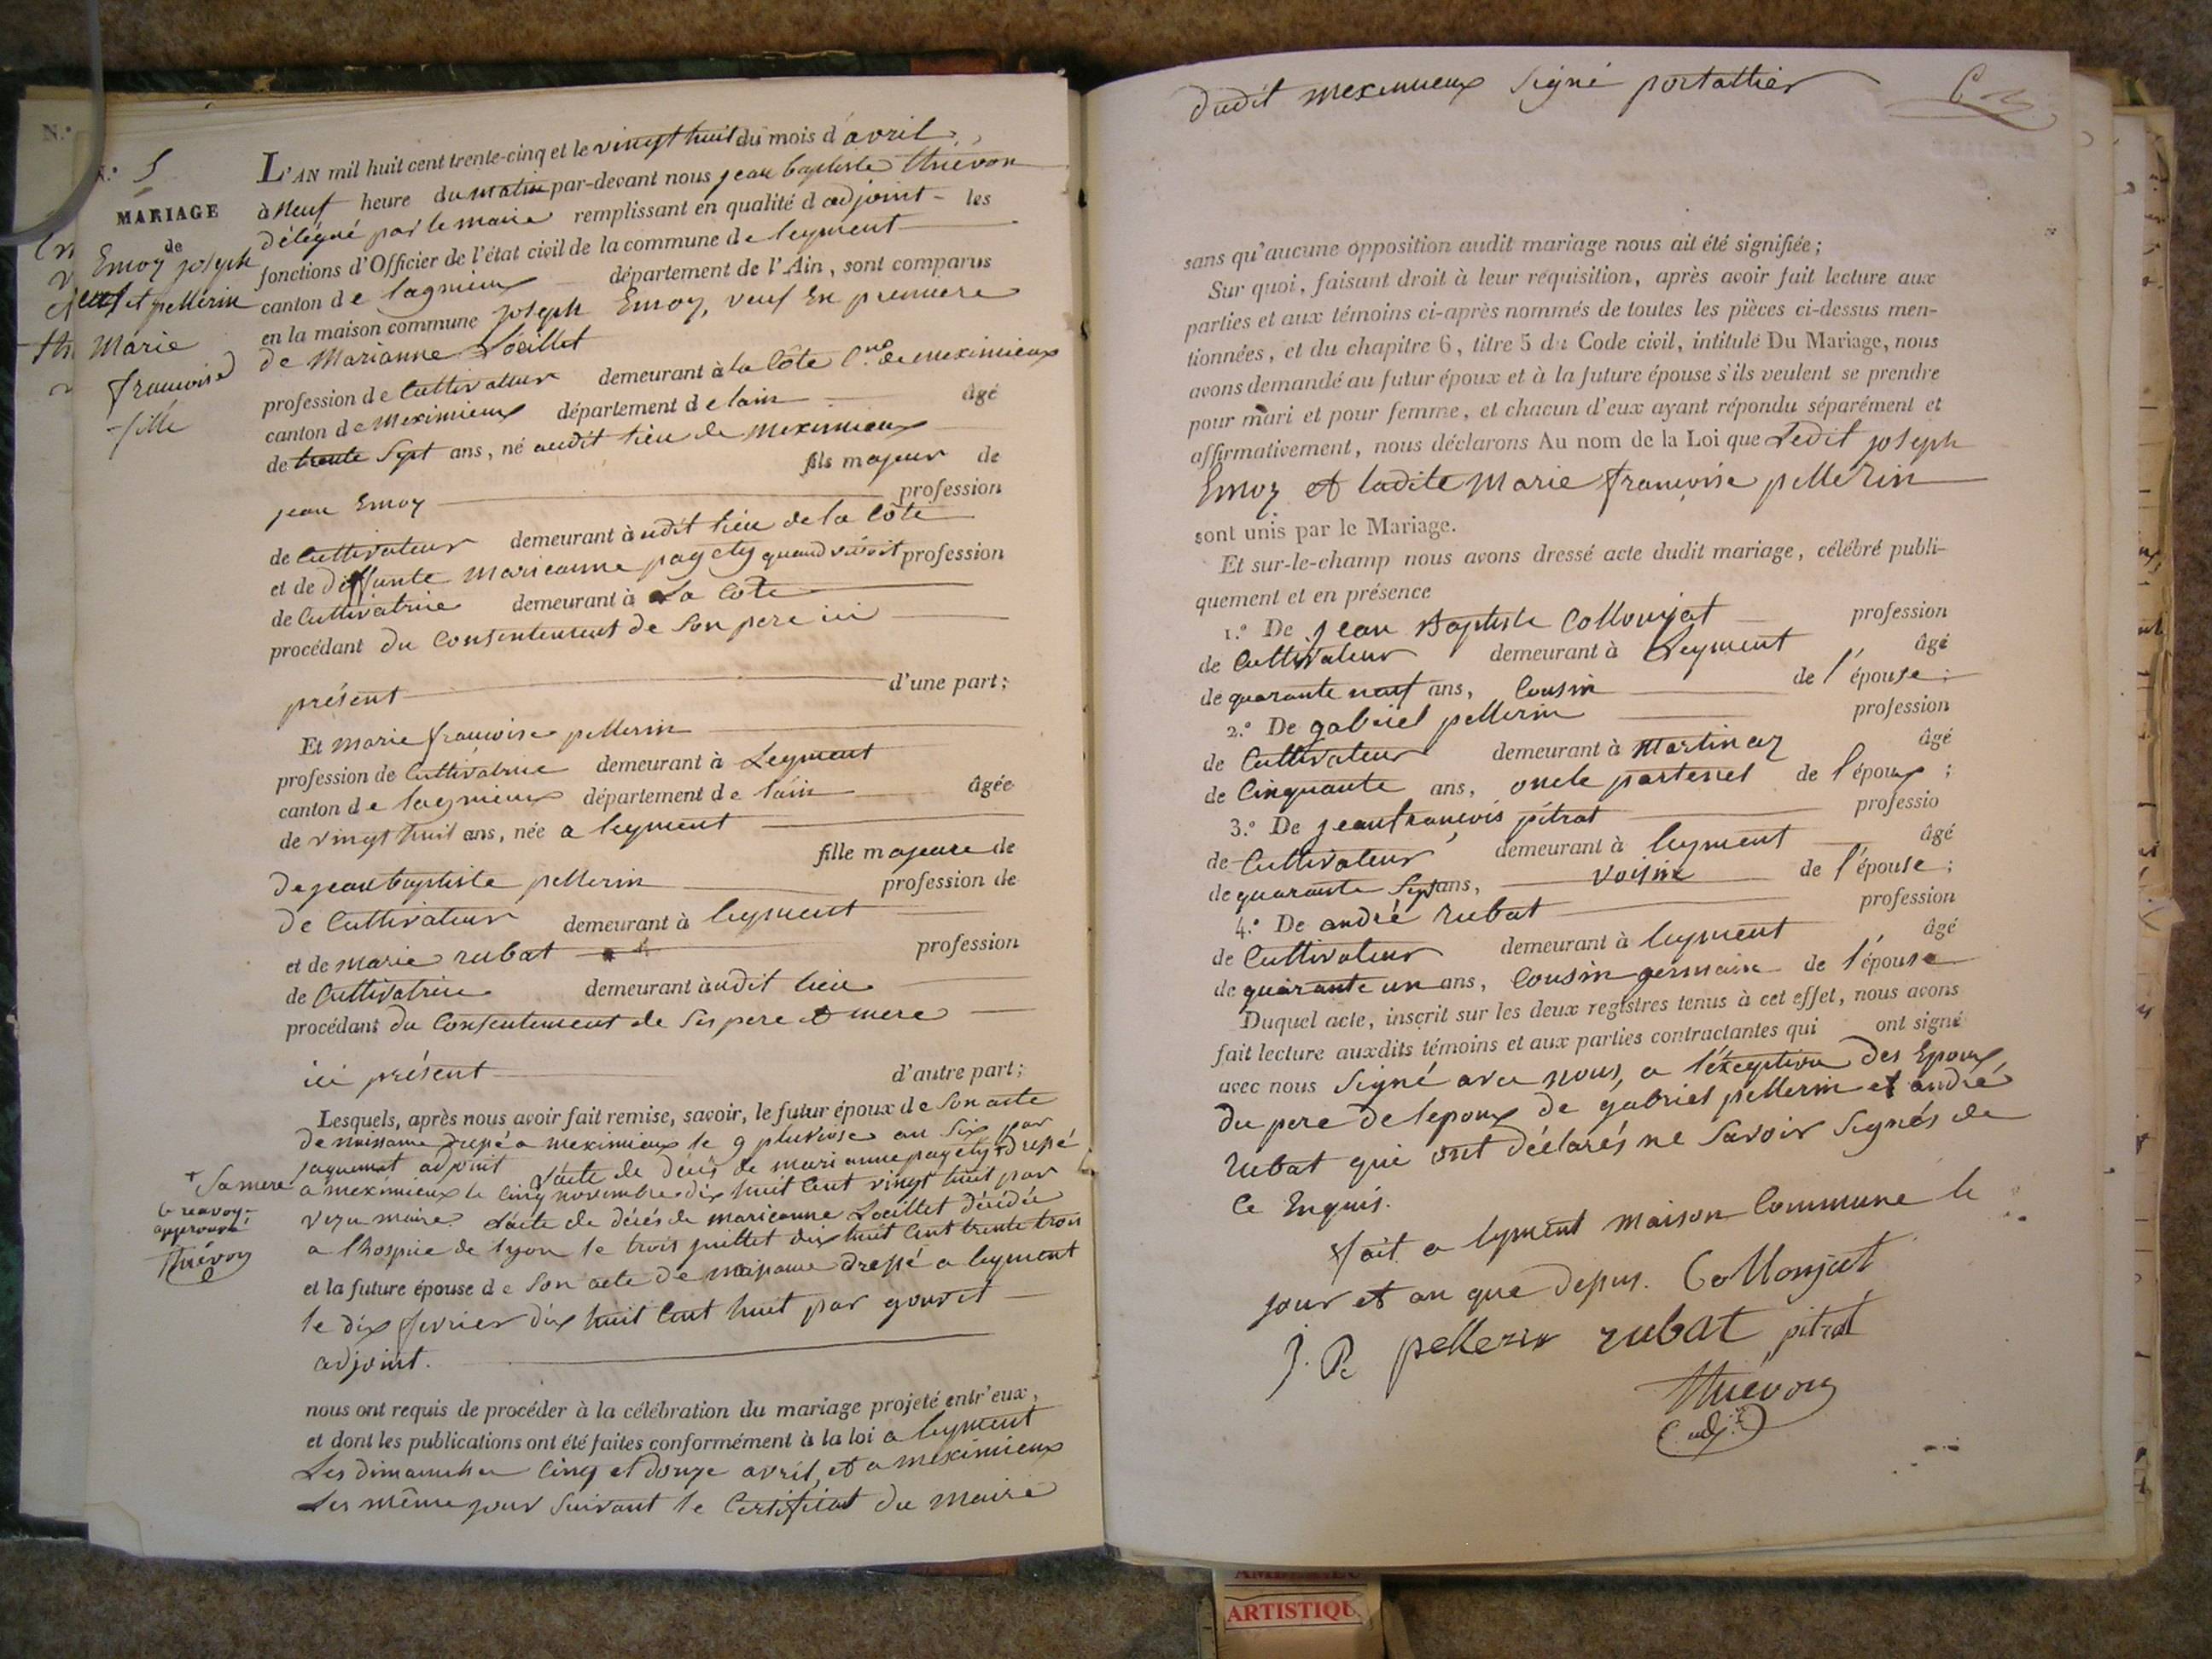 N.° 5
MARIAGE
de
Emoz joseph
veuf et pellerin
Marie
francoise
fille
L'AN mil huit cent trente-cinq et le vingt huit du mois d'avril
à Neuf heure du matin par-devant nous jean baptiste thievon
délégué par le maire remplissant en qualité d adjoint - les
fonctions d'Officier de l'état civil de la commune de leyment
canton de lagnieux département de l'Ain, sont comparus
en la maison commune joseph Emoz, veuf En premiere
de Marianne Loeillet
profession de Cultivateur demeurant à la Côte C.ne de meximieux
canton de Meximieux département de lain âgé
de trente Sept ans, né audit lieu de meximieux
fils majeur de
jean Emoz profession
de Cultivateur demeurant à udit lieu de la Côte
et de deffunte marieanne pagety quand vivoit profession
de Cultivatrice demeurant à La Côte
procédant du Consentement de Son pere ici
présent d'une part;
Et marie francoise pellerin
profession de Cultivatrice demeurant à Leyment
canton de lagnieux département de lain âgée
de vingt huit ans, née a leyment
fille majeure de
de jean baptiste pellerin profession de
de Cultivateur demeurant à leyment
et de marie rubat profession
de Cultivatrice demeurant àudit lieu
procédant du Consentement de Ses pere & mere
ici présent d'autre part;
Lesquels, après nous avoir fait remise, savoir, le futur époux de Son acte
de naissance dressé a meximieux le 9 pluviose an Six par
jaquemet adjoint L'acte de décès de marianne pagety + dressé
+ Sa mere
le renvoy
approuvé
thiévon
a meximieux le Cinq novembre dix huit Cent vingt huit par
maire L'acte de décès de marieanne Loeillet décédée
a lhospice de lyon le trois juillet dix huit Cent trente trois
et la future épouse de Son acte de naissance dressé a leyment
le dix fevrier dix huit Cent huit par gouvet
adjoint.
nous ont requis de procéder à la célébration du mariage projeté entr'eux,
et dont les publications ont été faites conformément à la loi a leyment
Les dimanche Cinq et douze avril, et a meximieux
Les même jour Suivant le Certificat du maire
dudit meximieux Signé portallier
sans qu'aucune opposition audit mariage nous ait été signifiée;
Sur quoi, faisant droit à leur réquisition, après avoir fait lecture aux
parties et aux témoins ci-après nommés de toutes les pièces ci-dessus men-
tionnées, et du chapitre 6, titre 5 du Code civil, intitulé Du Mariage, nous
avons demandé au futur époux et à la future épouse s'ils veulent se prendre
pour mari et pour femme, et chacun d'eux ayant répondu séparément et
affirmativement, nous déclarons Au nom de la Loi que Ledit joseph
Emoz et ladite Marie françoise pelleRin
sont unis par le Mariage.
Et sur-le-champ nous avons dressé acte dudit mariage, célébré publi-
quement et en présence
1.° De jean Baptiste Collonjat profession
de Cultivateur demeurant à Leyment âgé
de quarante neuf ans, Cousin de l'épouse;
2.° De gabriel pellerin profession
de Cultivateur demeurant à Martinaz âgé
de Cinquante ans, oncle parternel de l'époux;
3.° De jeanfrancois pitrat professio
de Cultivateur demeurant à leyment âgé
de quarante Sept ans, voisin de l'épouse;
4.° De andré rubat profession
de Cultivateur demeurant à leyment âgé
de quarante un ans, Cousin germain de l'épouse
Duquel acte, inscrit sur les deux registres tenus à cet effet, nous avons
fait lecture auxdits témoins et aux parties contractantes qui ont signé
avec nous Signé avec nous, a l'éxeption des Epoux,
du pere de lepoux de gabriel pellerin et andré
rubat qui ont déclarés ne Savoir Signés de
Ce Enquis.
fait a lyment maison Commune le
jour et an que depus. Collonjat
J. B pellerin rubat pitrat
thievon
adj.
ARTISTIQU